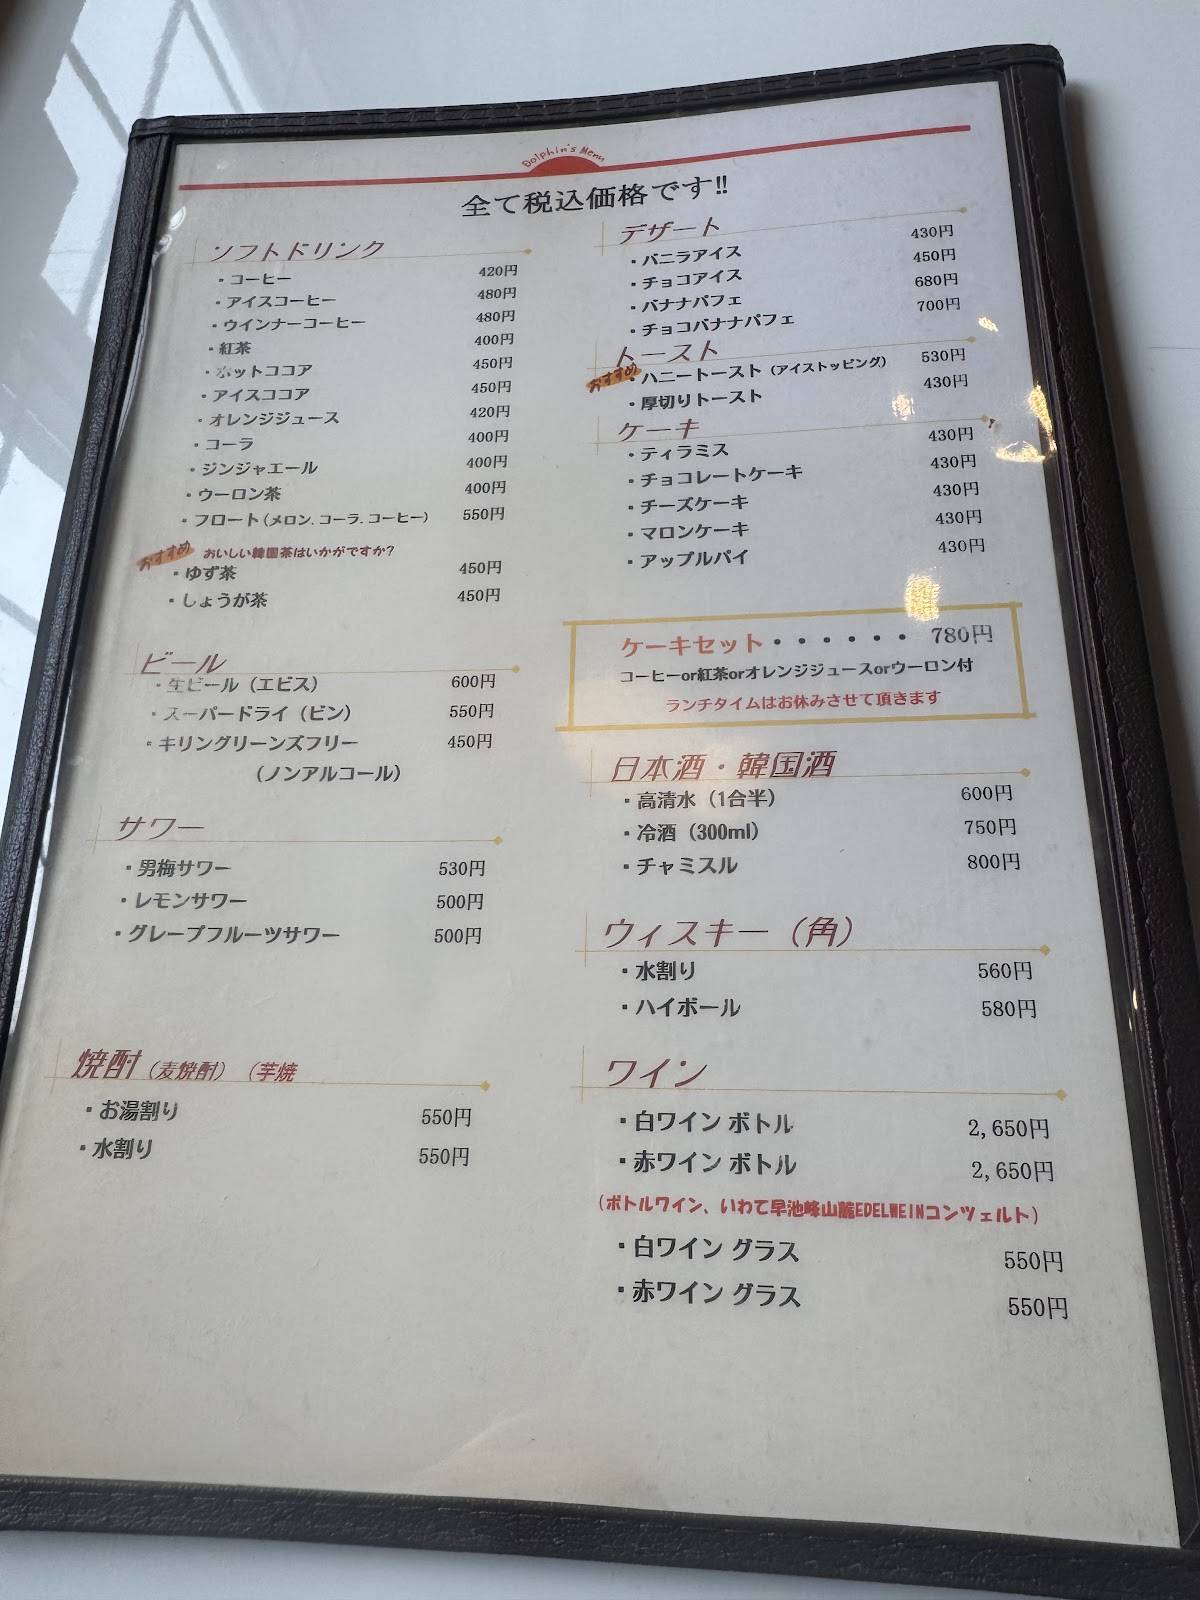 Dolphin's Menu
全て税込価格です!!
ソフトドリンク
・コーヒー 420円
・アイスコーヒー 480円
・ウインナーコーヒー 480円
・紅茶 400円
・ホットココア 450円
・アイスココア 450円
・オレンジジュース 420円
・コーラ 400円
・ジンジャエール 400円
・ウーロン茶 400円
・フロート(メロン.コーラ.コーヒー) 550円
おすすめ おいしい韓国茶はいかがですか?
・ゆず茶 450円
・しょうが茶 450円
ビール
・生ビール(エビス) 600円
・スーパードライ(ビン) 550円
・キリングリーンズフリー 450円
(ノンアルコール)
サワー
・男梅サワー 530円
・レモンサワー 500円
・グレープフルーツサワー 500円
焼酎(麦焼酎)(芋焼
・お湯割り 550円
・水割り 550円
デザート
・バニラアイス 430円
・チョコアイス 450円
・バナナパフェ 680円
・チョコバナナパフェ 700円
トースト
おすすめ・ハニートースト(アイストッピング) 530円
・厚切りトースト 430円
ケーキ
・ティラミス 430円
・チョコレートケーキ 430円
・チーズケーキ 430円
・マロンケーキ 430円
・アップルパイ 430円
ケーキセット・・・・・・ 780円
コーヒーor紅茶orオレンジジュースorウーロン付
ランチタイムはお休みさせて頂きます
日本酒・韓国酒
・高清水(1合半) 600円
・冷酒(300ml) 750円
・チャミスル 800円
ウィスキー(角)
・水割り 560円
・ハイボール 580円
ワイン
・白ワイン ボトル 2,650円
・赤ワイン ボトル 2,650円
(ボトルワイン、いわて早池峰山麓EDELWEINコンツェルト)
・白ワイン グラス 550円
・赤ワイン グラス 550円